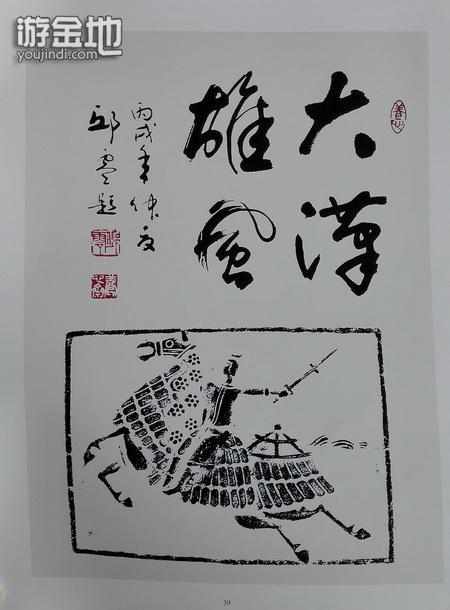 游金地
youjindi.com
大漢
雄風
丙戌年仲夏
邱 題